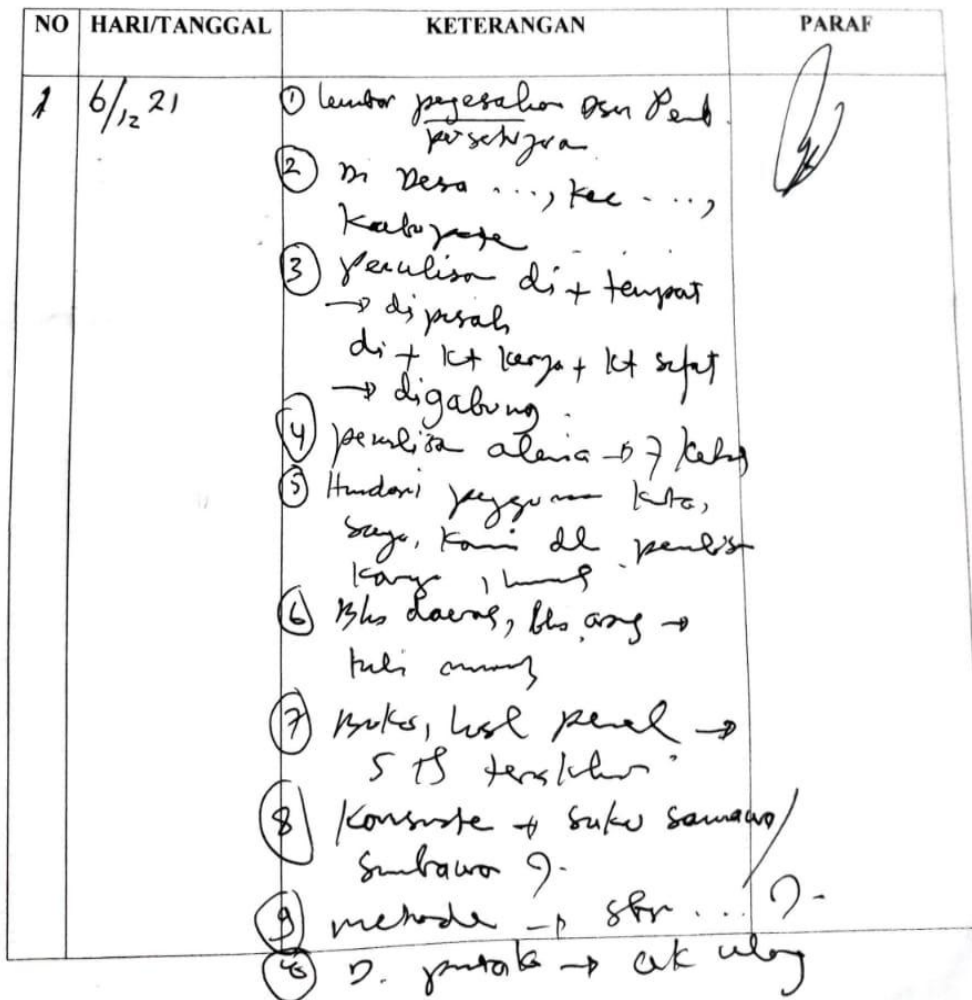 NO HARI/TANGGAL KETERANGAN PARAF
1 6/12 21 ① lembar pegesahan Dsn Pemb.
persetujuan
② Di Desa ..., Kec ...,
Kabupate
③ Penulisan di + tempat
→ dipisah
di + kt kerja + kt sifat
→ digabung.
④ penulisan alenia → 7 ketuk
⑤ Hindari penggunaan kita,
saya, kami dl penulisan
karya ilmiah.
⑥ Bhs daerah, bhs asing →
tulis miring
⑦ Buku, hasl penel →
5 th terakhir
⑧ Konsiste → suku samawa/
Sumbawa ?.
⑨ metode → sbr ... ?.
⑩ D. pustaka → cek ulang